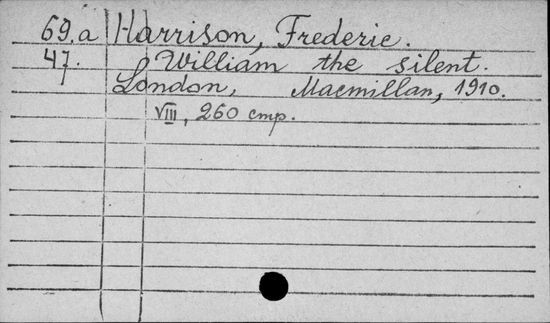 69.a Harrison, Frederic.
47. William the silent.
London, Macmillan, 1910.
VIII, 260 cmp.